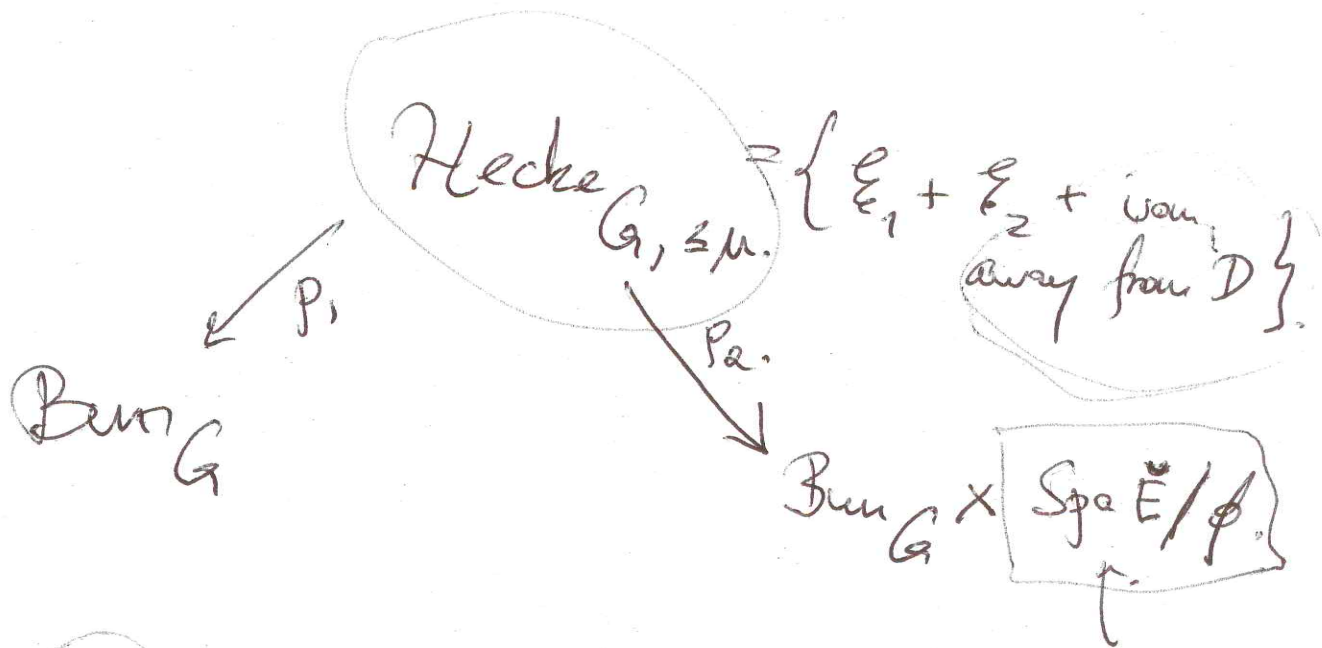 Hecke_{G, ≤μ.} = { ℰ_1 + ℰ_2 + isom.
away from D }.
p_1
p_2.
Bun_G
Bun_G × Spa Ĕ/φ.